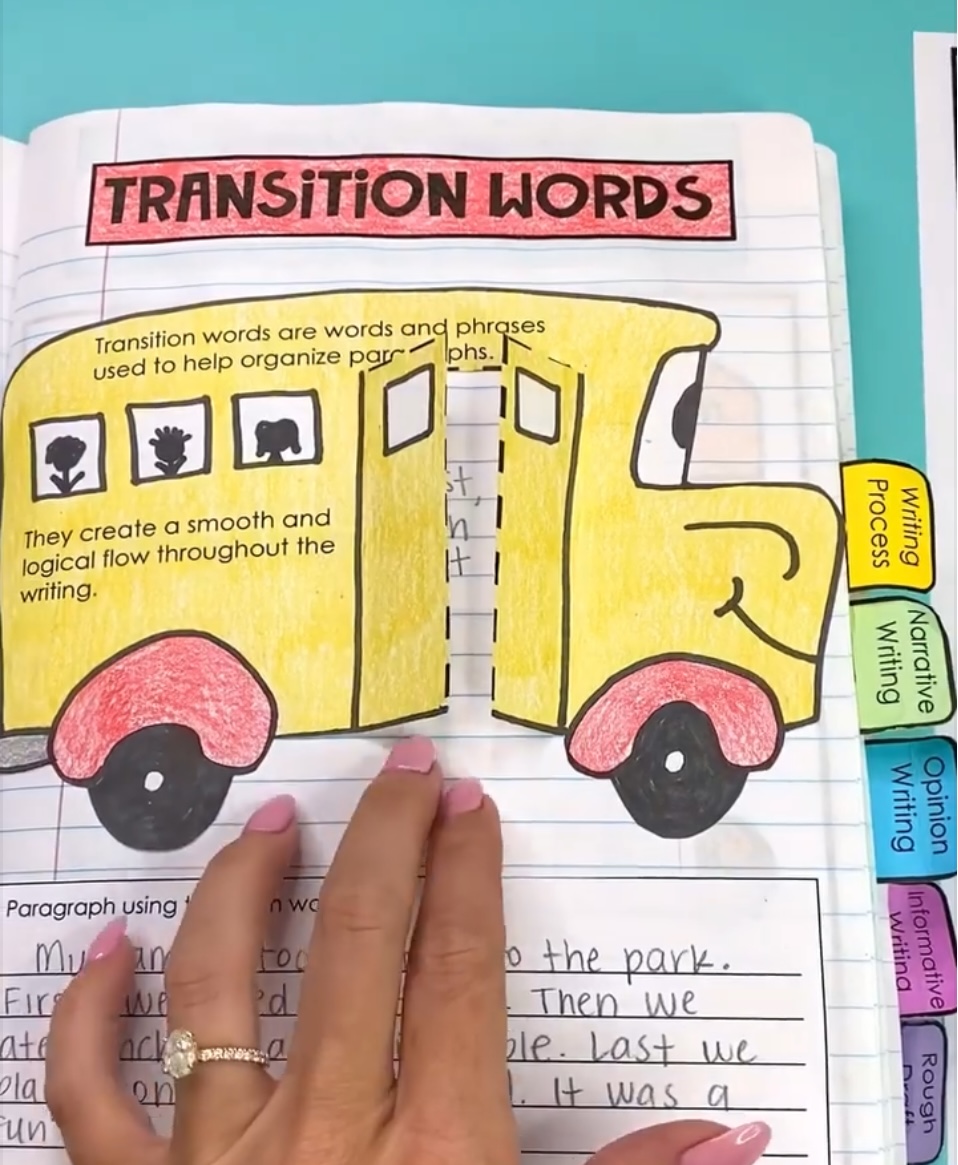 TRANSITION WORDS
Transition words are words and phrases
used to help organize
They create a smooth and
logical flow throughout the
writing.
Writing
Process
Narrative
Writing
Opinion
Writing
Informative
Writing
Rough
Draft
Paragraph using
My to the park.
we Then we
Last we
on It was a